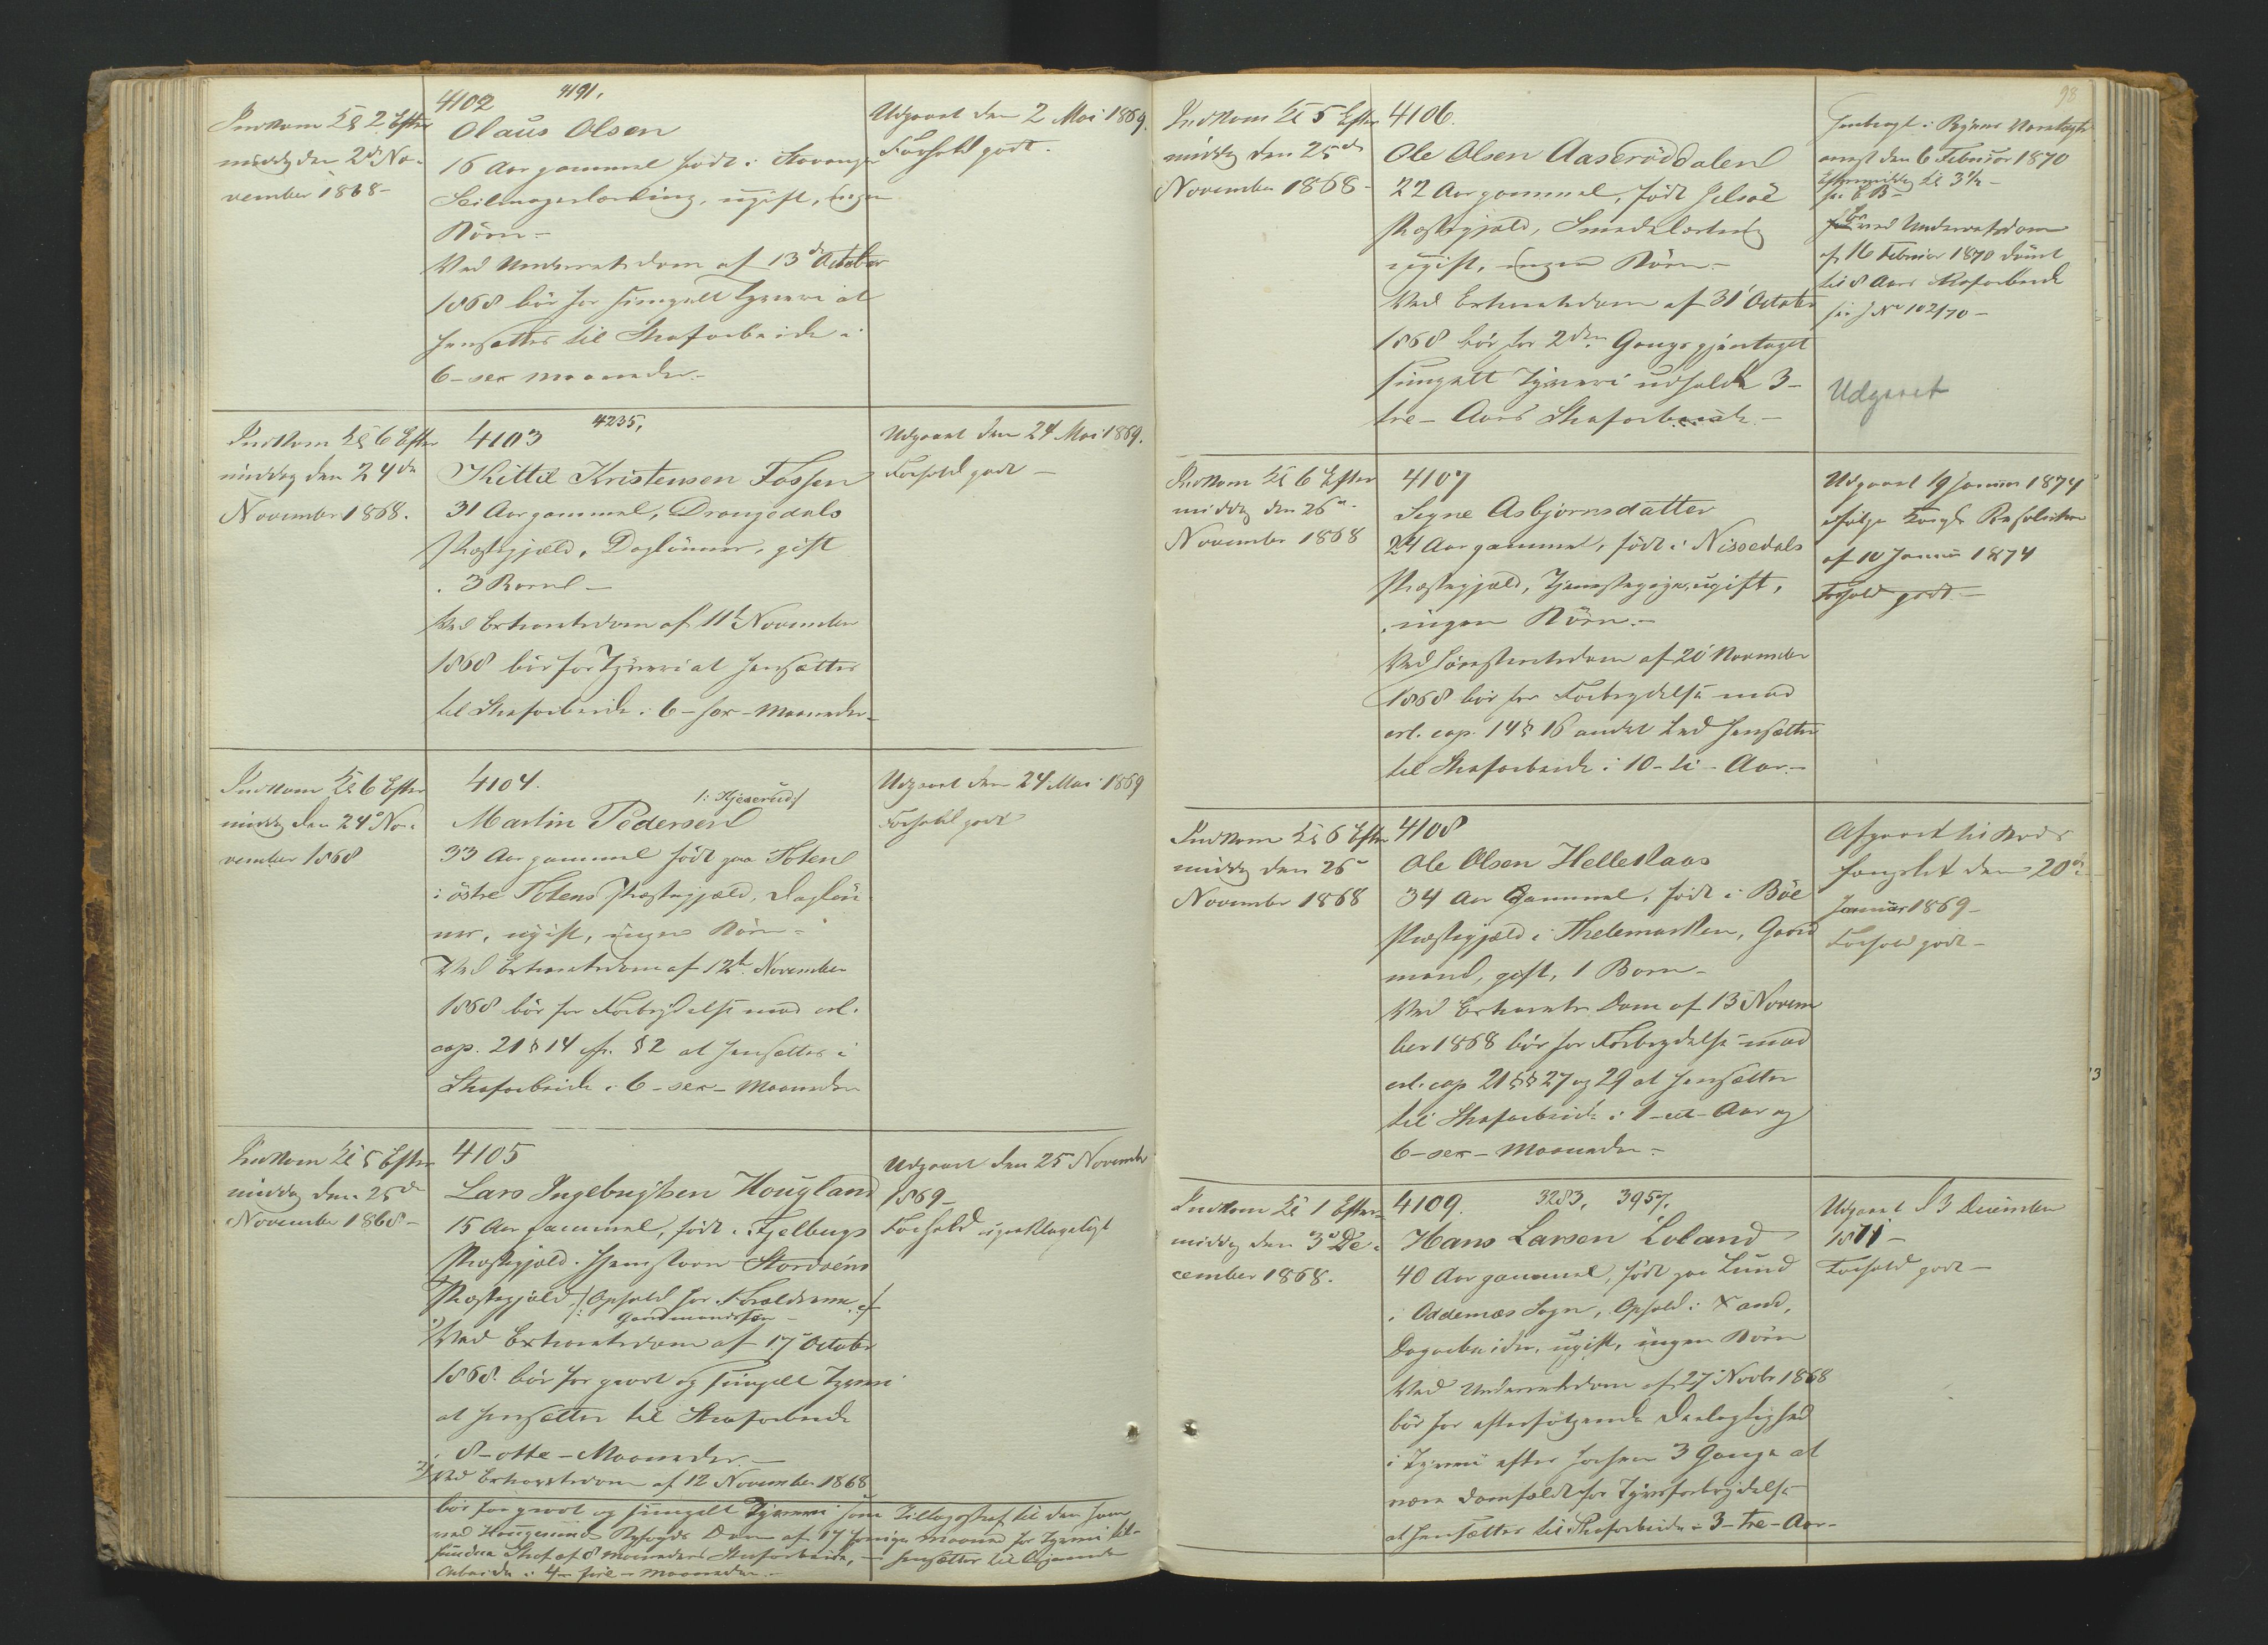 4102 4191.
Indkom Kl 2 Efter
middg den 2d No-
vember 1868-
Olaus Olsen
16 Aar gammel født i Stavanger
Seilmagerlærling, ugift, ingen
Börn-
Ved Underretsdom af 13de October
1868 bör for simpelt Tyveri at
hensættes til Strafarbeide i
6-sex Maaneder.-
Udgaaet den 2 Mai 1869.
Forhold godt.
Indkom Kl 6 Efter
middag den 24de
November 1868.
4103 4235,
Kittil Kristensen Fossen
31 Aar gammel, Drangedals
Præstegjæld, Daglönner, gift
3 Børn-
Ved Extraretsdom af 11te November
1868 bör for Tyveri at hensættes
til Strafarbeide i 6-sex-Maaneder-
Udgaaet den 24 Mai 1869.
Forhold godt-
Indkom Kl 6 Efter
middg den 24de No-
vember 1868
4104.
Martin Pedersen
33 Aar gammel født paa Toten
i östre Totens Præstegjæld, Daglön-
ner, ugift, ingen Börn-
Ved Extraretsdom af 12te November
1868 bör for Forbrydelse mod crl.
cap. 21 § 14 cfr. § 2 at hensættes i
Strafarbeide i 6-sex-Maaneder
Udgaaet den 24 Mai 1869
Forhold godt
Indkom Kl 5 Efter
middag den 25de
November 1868-
4105
Lars Ingebrigtsen Hougland
15 Aar gammel, födt i Fjelbergs
Præstegjæld. Hjemstavn Stordöens
Præstegjæld, /Ophold hos Forældrene/
Gaardmandssön-
Ved Extraretsdom af 17 October
1868. bör for grovt og simpelt Tyveri
at hensættes til Strafarbeide
i 8-otte-Maaneder.-
2/ Ved Extraretsdom af 12 November 1868
bör for grovt og simpelt Tyveri som Tillægsstraf til den ham
ved Haugesunds Byfogds Dom af 17 forrige Maaned for Tyveri til-
fundne Straf af 8 Maaneders Strafarbeide, - hensættes til lignende
Arbeide i 4-fire-Maaneder.-
Udgaaet den 25 November
1869-
Forhold upaaklageligt
98
Indkom Kl 5 Efter
middg den 25de
November 1868-
4106.
Ole Olsen Aaserøddalen
22 Aar gammel, födt Jelsöe
Præstegjæld, Smedelærling
ugift, ingen Börn-
Ved Extraretsdom af 31 October
1868 bör for 2den Gangs gjentaget
simpelt Tyveri udholde 3-
tre-Aars Strafarbeide.-
arrest den 6 Februar 1870
Eftermiddag Kl 3½-
ved Underretsdom
af 16 Februar 1870 dömt
til 8 Aars Strafarbeide
J No 102/70-
Udgaaet
Indkom Kl 6 Efter
middg den 26de
November 1868
4107
Signe Asbjørnsdatter
24 Aar gammel, födt i Nissedals
Præstegjæld, Tjenestepige, ugift,
ingen Börn.-
Ved Høiesteretsdom af 20 November
1868 bör for Forbrydelse mod
crl. cap. 14 § 16 andet Led hensættes
til Strafarbeide i 10-ti-Aar.-
Udgaaet 19 Januar 1874
ifölge Kongl. Resolution
af 10 Januar 1874
Forhold godt.-
Indkom Kl 6 Efter
middg den 26de
November 1868
4108
Ole Olsen Hellestaas
34 Aar Gammel, födt i Böe
Præstegjæld i Thelemarken, Gaard
mand, gift, 1 Barn-
Ved Extrarets Dom af 13 Novem
ber 1868 bör for Forbrydelse mod
crl. cap 21 §§ 27 og 29 at hensættes
til Strafarbeide i 1-et-Aar og
6-sex-Maaneder-
Afgaaet til Bods
fængslet den 20de
Januar 1869-
Forhold godt-
Indkom Kl 1 Efter-
middg den 3de De-
cember 1868.
4109. 3283, 3957,
Hans Larsen Loland
40 Aar gammel, födt paa Lund
i Oddernæs Sogn, Ophold i Xand,
Dagarbeider, ugift, ingen Börn
Ved Underretsdom af 27 Novbr 1868
bör for efterfölgende Deelagtighed
i Tyveri efter forhen 3 Gange at
være domfældt for Tyvsforbrydelse
at hensættes til Strafarbeide i 3-tre-Aar-
Udgaaet d 3 December
1871-
Forhold godt-